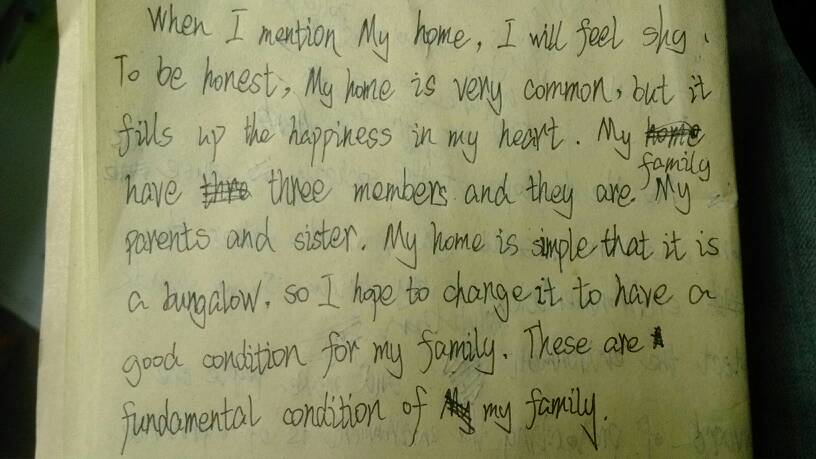 When I mention My home, I will feel shy.
To be honest, My home is very common, but it
fills up the happiness in my heart. My
family
have three members and they are. My
parents and sister. My home is simple that it is
a bungalow. so I hope to change it to have a
good condition for my family. These are
fundamental condition of my family.